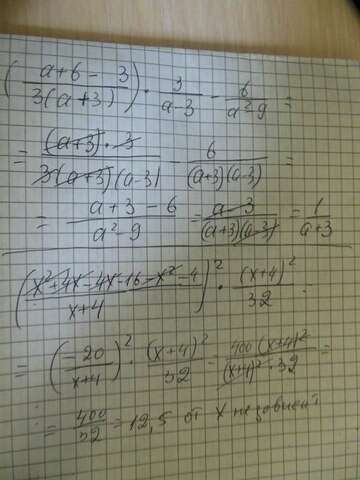 ((a+6-3)/(3(a+3))) · 3/(a-3) - 6/(a²-9) =
= ((a+3)·3)/(3(a+3)(a-3)) - 6/((a+3)(a-3)) =
= (a+3-6)/(a²-9) = (a-3)/((a+3)(a-3)) = 1/(a+3)
((x²+4x-4x-16-x²-4)/(x+4))² · (x+4)²/32
= (-20/(x+4))² · (x+4)²/32 = 400(x+4)²/((x+4)²·32) =
= 400/32 = 12,5 от x не зависит